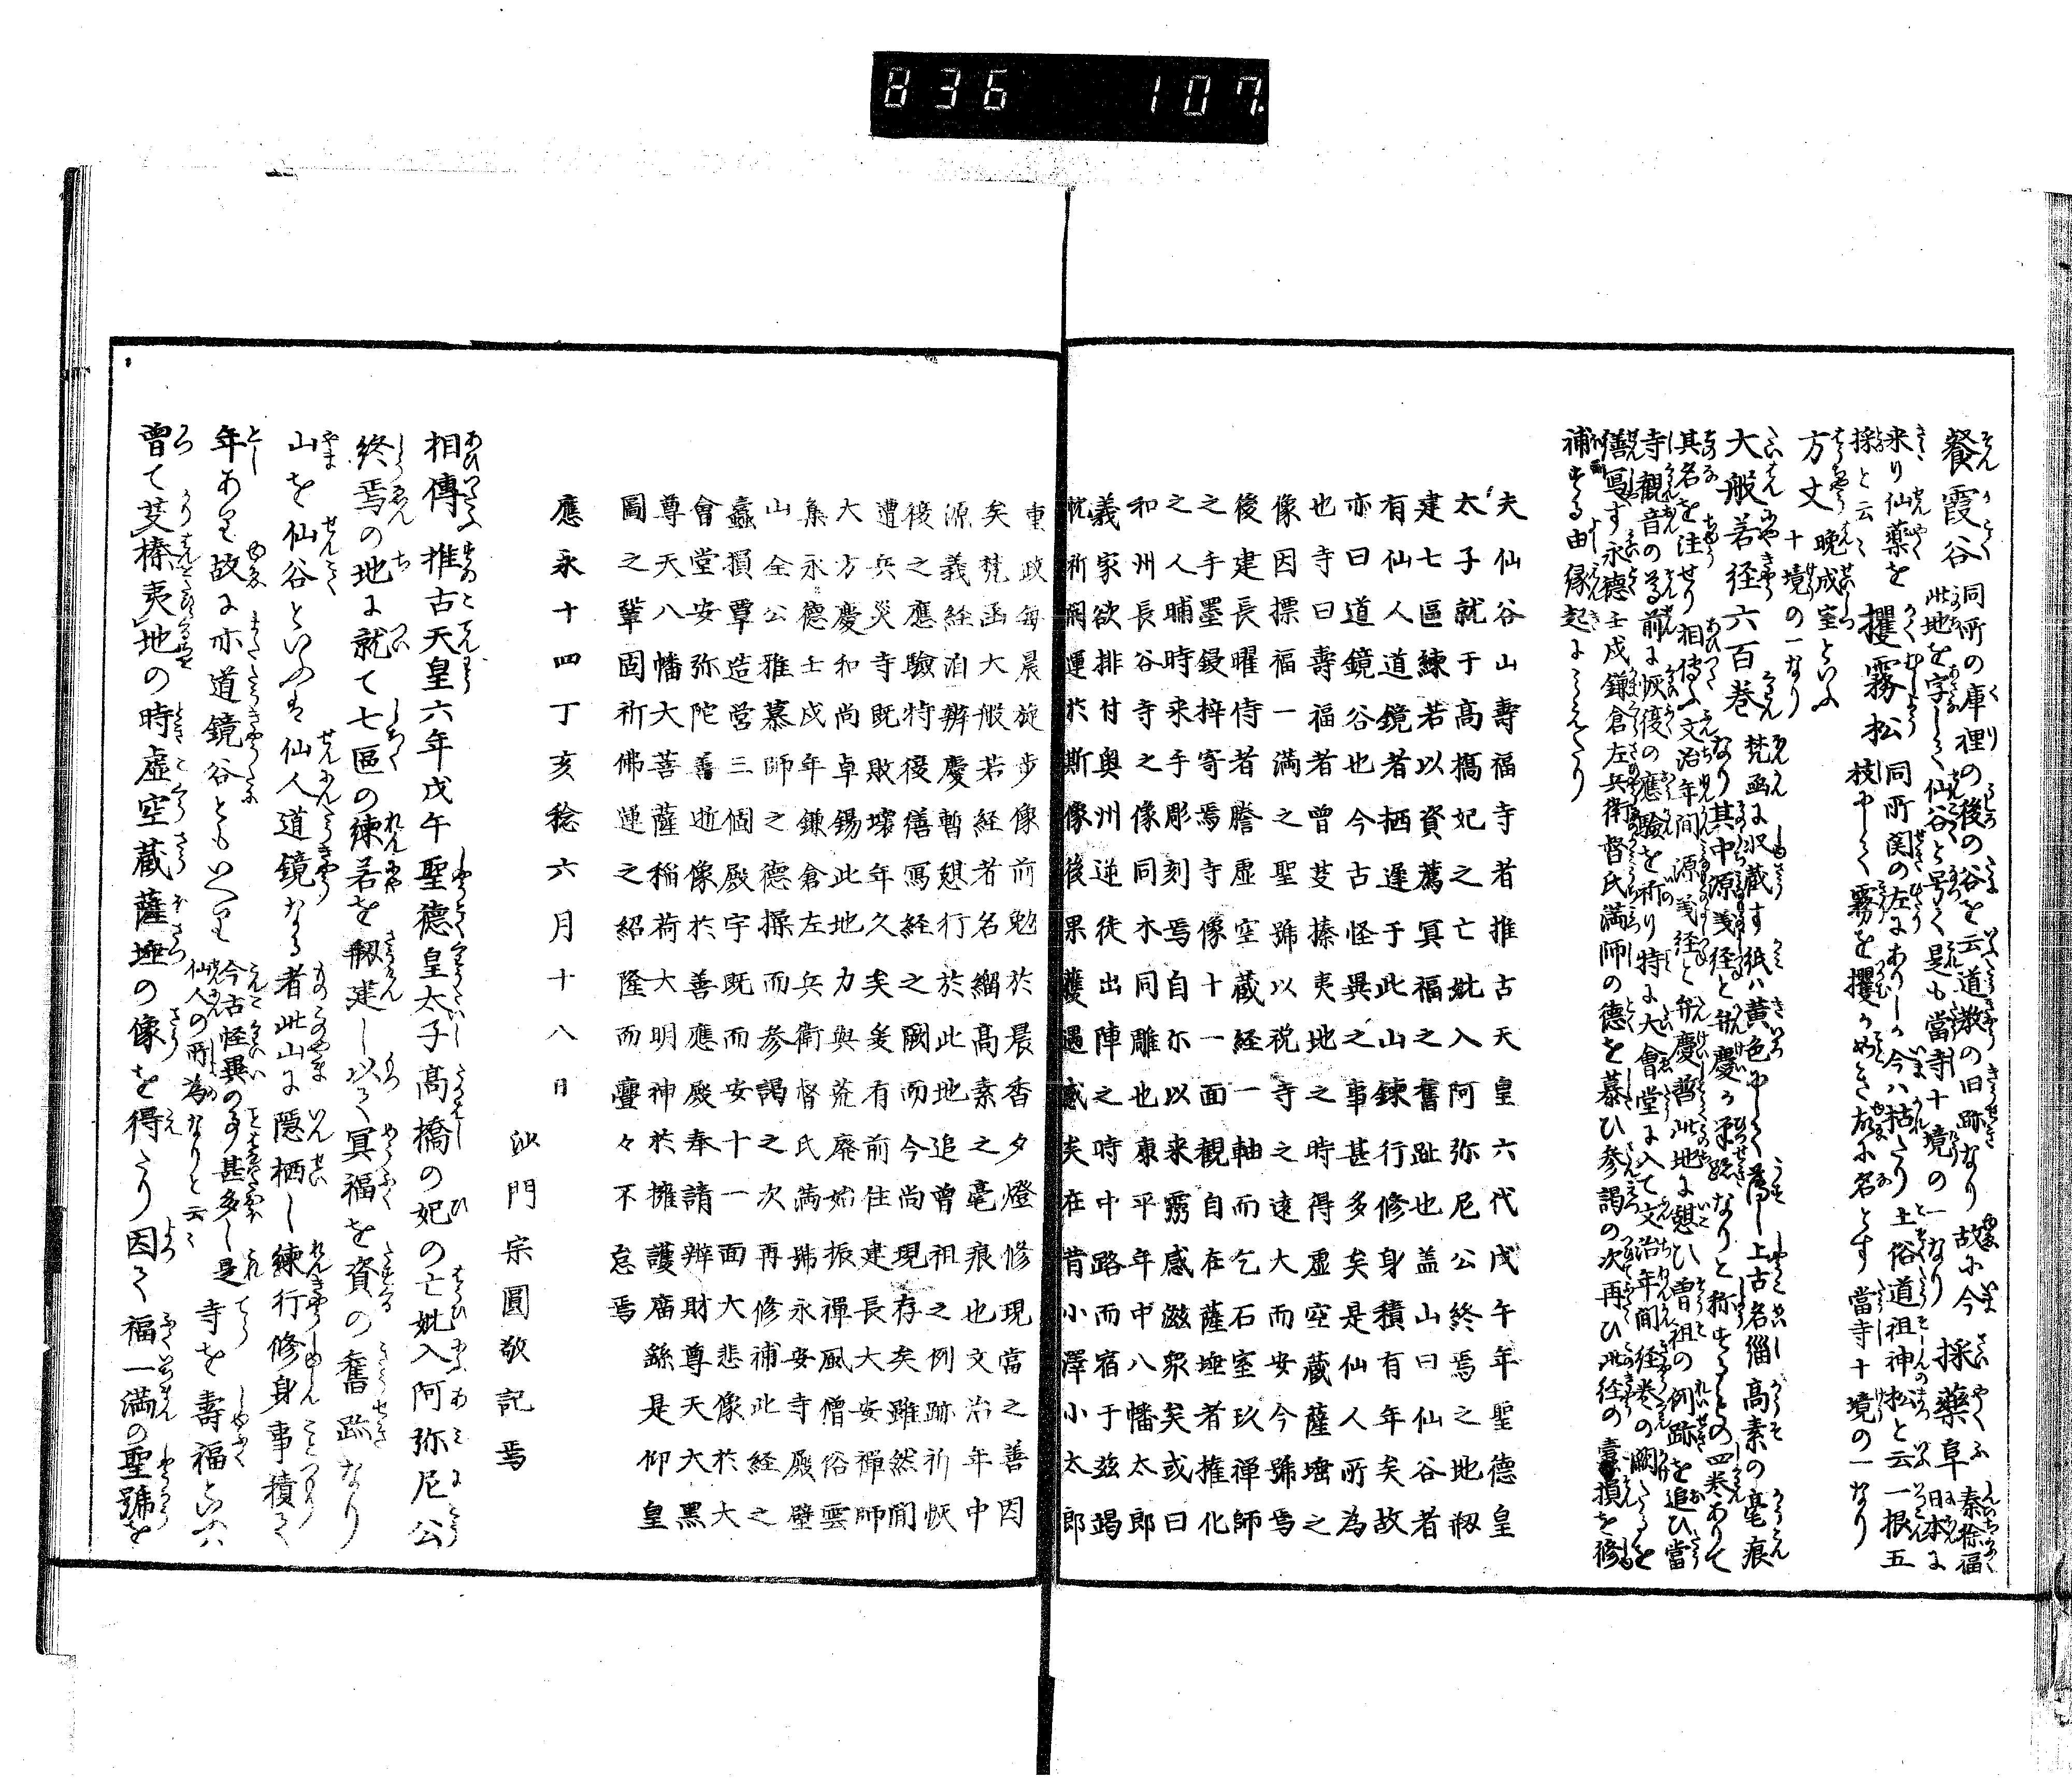 836 107
餐霞谷 同所の庫裡の後の谷を云道教の旧跡なり故に今
此地を字して仙谷と号く是も當寺十境の一なり
採藥阜 秦徐福日本に
来り仙藥を
採と云々
攫霧松 同所関の左にありしか今ハ枯たり土俗道祖神松と云一根五
枝にして霧を攫か如き故に名とす當寺十境の一なり
方丈 晩成室といふ
十境の一なり
大般若径六百巻 梵函に収蔵す紙ハ黄色にして薄し上古名緇高素の毫痕
なり其中源義経と弁慶か筆跡なりと称するもの四巻ありて
其名を注せり相傳ふ文治年間源義経と弁慶暫此地に憩ひ曽祖の例跡を追ひ當
寺觀音の尊前に恢復の應驗を祈り特に大會堂に入て文治年間経巻の闕たるを
繕冩す永德壬戌鎌倉左兵衛督氏満師の德を慕ひ参謁の次再ひ此径の蠧損を修
補する由縁起にみえたり
夫仙谷山壽福寺者推古天皇六代戊午年聖德皇
太子就于高橋妃之亡妣入阿弥尼公終焉之地刱
建七區練若以資薦冥福之舊趾也盖山曰仙谷者
有仙人道鏡者栖遅于此山錬行修身積有年矣故
亦曰道鏡谷也今古怪異之事甚多矣是仙人所為
也寺曰壽福者曽芟榛夷地之時得虚空蔵薩埵之
像因摽福一満之聖號以稅寺之遠大而安今號焉
後建長曜侍者謄虚空蔵経一軸而乞石室玖禪師
之手墨鋟梓寄焉寺像十一面觀自在薩埵者推化
之人晡時来手彫刻焉自尓以来靈感滋衆矣或曰
和州長谷寺之像同木同雕也康平年中八幡太郎
義家欲排付奥州逆徒出陣之時中路而宿于兹竭
忱祈開運於斯像後果獲遇感矣在昔小澤小太郎
重政毎晨旋歩像前勉於晨香夕燈修現當之善因
矣梵函大般若経者名緇高素之毫痕也文治年中
源義経洎辨慶暫憩行於此地追曽祖之例跡祈恢
復之應驗特復繕冩経之闕而今尚現存矣雖然間
遭兵災寺既敗壊年久矣爰有前住建長大安禪師
大方慶和尚卓錫此地力與荒廢始振禪風僧俗雲
集永德壬戌年鎌倉左兵衛督氏満號永安寺殿壁
山全公雅慕師之德操而参謁之次再修補此経之
蠧損覃造営三個殿宇既而安十一面大悲像於大
會堂安弥陀善逝像於善應殿奉請辨財尊天大黒
尊天八幡大菩薩稲荷大明神於擁護廟繇是仰皇
圖之鞏固祈佛運之紹隆而亹々不怠焉
應永十四丁亥稔六月十八日
沙門宗圓敬記焉
相傳推古天皇六年戊午聖德皇太子高橋の妃の亡妣入阿弥尼公
終焉の地に就て七區の練若を刱建し以て冥福を資の舊跡なり
山を仙谷といふハ仙人道鏡なる者此山に隠栖し練行修身事積て
年あり故に亦道鏡谷ともいへり 今古怪異の事甚多し是
仙人の所為なりと云々 寺を壽福と云ハ
曽て芟榛夷地の時虚空蔵薩埵の像を得たり因て福一満の聖號を